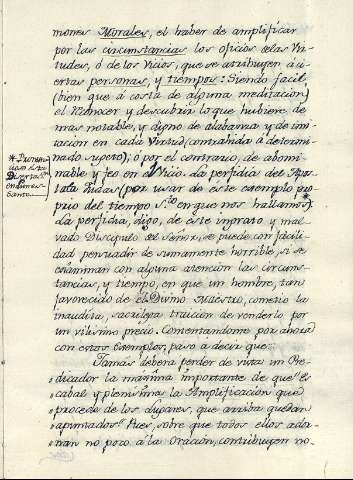 mones Morales, el haber de amplificar
por las circunstancias los oficios de las Vir-
tudes, ó de los Vicios, que se atribuyen á ci-
ertas personas, y tiempos: Siendo facil
(bien que á costa de alguna meditacion)
el conocer y descubrir lo que hubiere de
mas notable, y digno de alabanza y de imi-
tacion en cada Virtud (contrahida á determi-
nado sugeto), o por el contrario, de abomi-
nable y feo en el Vicio. La perfidia del Apos-
tata Judas (por usar de este exemplo pro-
prio del tiempo Sto en que nos hallamos*)
La perfidia, digo, de este ingrato y mal-
vado Discipulo del Señor, se puede con facili-
dad persuadir de sumamente horrible, si se
examinan con alguna atencion las circuns-
tancias, y tiempo, en que un hombre, tan
favorecido de el Divino Maestro, cometio la
inaudita, sacrilega traicion de venderlo por
un vilisimo precio. Contentandome por ahora
con estos exemplos, paso a decir que:
Jamás deberá perder de vista un Pre-
dicador la maxima importante de que es
cabal y plenisima la Amplificacion que
procede de los Lugares, que arriba quedan
apuntados. Pues, sobre que todos ellos ador-
nan no poco á la Oración, contribuyen no-
* Pronun
esta
Semana
Santa